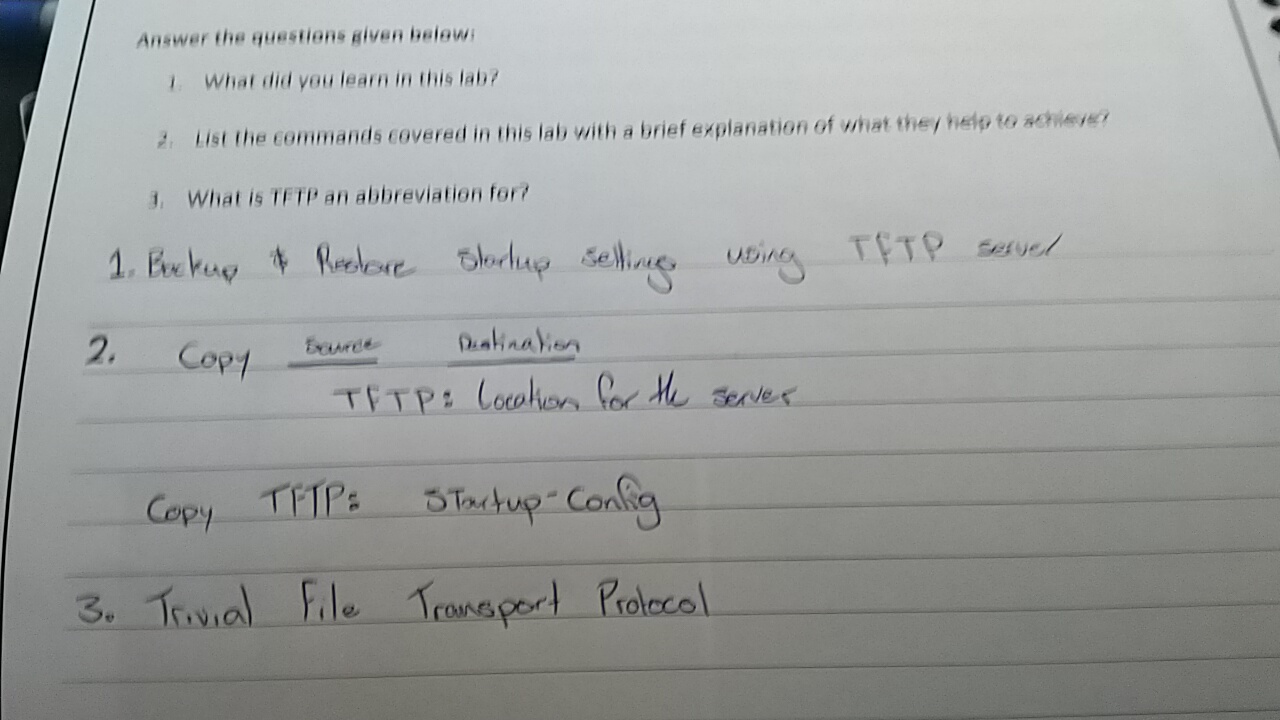 Answer the questions given below:
1. What did you learn in this lab?
2. List the commands covered in this lab with a brief explanation of what they help to achieve?
3. What is TFTP an abbreviation for?
1. Backup & Restore Startup settings using TFTP server
2. Copy Source Destination
TFTP: Location for the server
Copy TFTP: Startup-Config
3. Trivial File Transport Protocol